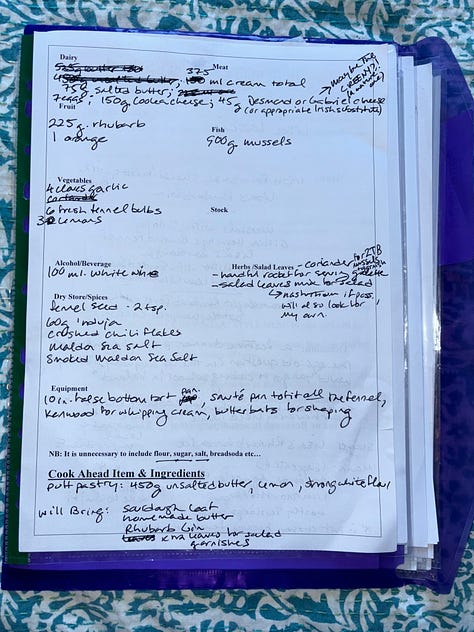 Dairy
Meat
525g butter
375
450g unsalted butter, ml cream total
75g salted butter;
7 eggs; 150g Coolea cheese; 45g Desmond or Gabriel cheese
(or appropriate Irish substitute)
maybe the
Fruit
225g rhubarb
1 orange
Fish
900g mussels
Vegetables
4 cloves garlic
6 fresh fennel bulbs
3 lemons
Stock
Alcohol/Beverage
100 ml. white wine
Herbs /Salad Leaves - coriander for 2TB
- handful rocket for serving galette
- salad leaves mix for salad
nasturtium if poss,
will also look for
my own.
Dry Store/Spices
fennel seed: 2 tsp.
60g 'nduja
crushed chili flakes
maldon sea salt
smoked maldon sea salt
Equipment
10 in. false bottom tart pan, sauté pan to fit all the fennel,
kenwood for whipping cream, butter bats for shaping
NB: It is unnecessary to include flour, sugar, salt, breadsoda etc…
Cook Ahead Item & Ingredients
puff pastry: 450g unsalted butter, lemon, strong white flour
will Bring: sourdough loaf
homemade butter
Rhubarb Gin
leaves xtra leaves for salad
garnishes